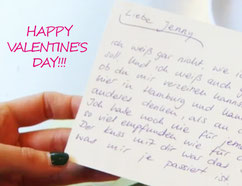 HAPPY
VALENTINE'S
DAY!!!
Liebe Jenny
ich weiß gar nicht, wie ich
soll und ich weiß auch
ob du mir verzeihen kannst
wer in Hamburg und kann
anderes denken, als an
Ich habe noch nie für jem
so viel empfunden wie für
Der Kuss mit dir war das
was mir je passiert ist